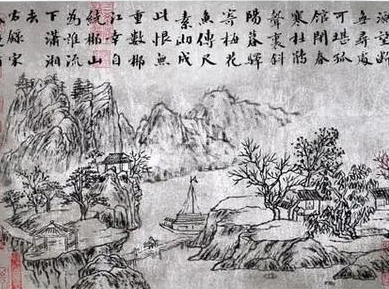 源望斷
無尋處
可堪孤
館閉春
寒杜鵑
聲裏斜
陽暮驛
寄梅花
魚傳尺
素砌成
此恨無
重數郴
江幸自
繞郴山
為誰流
下瀟湘
去